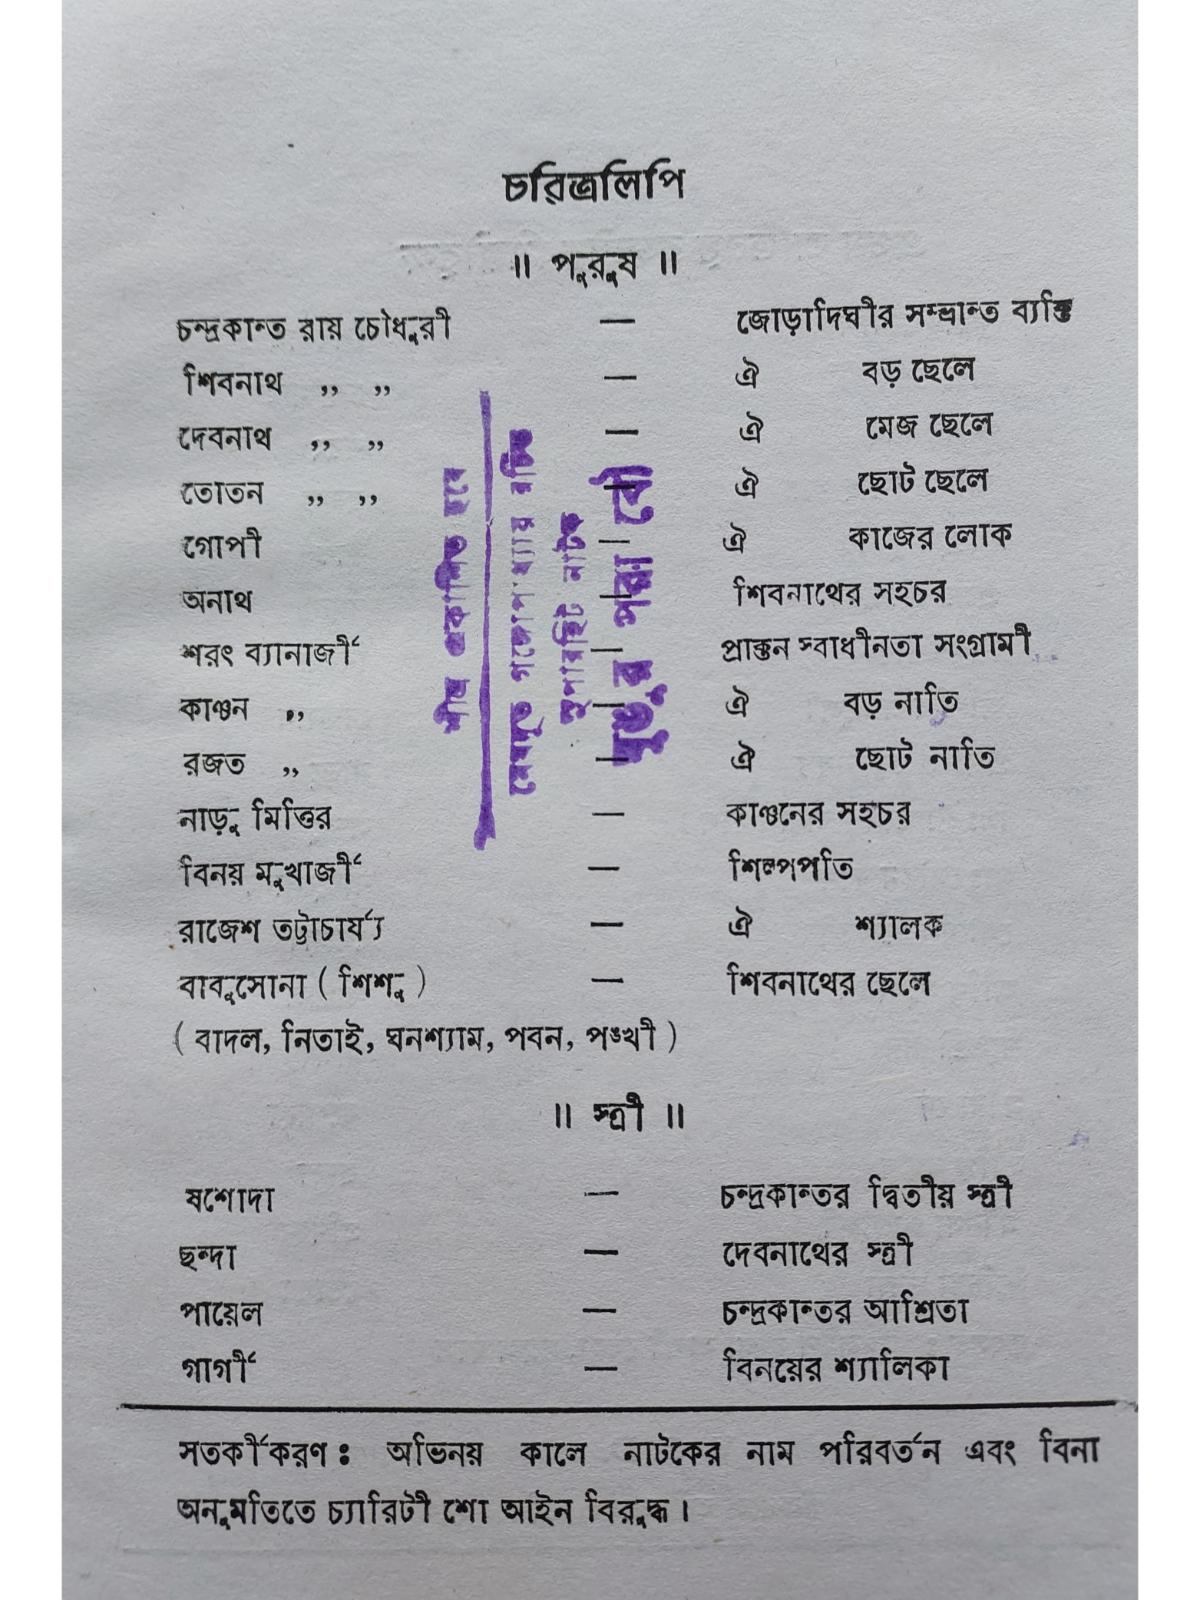 চরিত্রলিপি
॥ পুরুষ ॥
চন্দ্রকান্ত রায় চৌধুরী — জোড়াদিঘীর সম্ভ্রান্ত ব্যক্তি
শিবনাথ ,, ,, — ঐ বড় ছেলে
দেবনাথ ,, ,, — ঐ মেজ ছেলে
তোতন ,, ,, — ঐ ছোট ছেলে
গোপী — ঐ কাজের লোক
অনাথ — শিবনাথের সহচর
শরৎ ব্যানার্জী — প্রাক্তন স্বাধীনতা সংগ্রামী
কাঞ্চন ,, — ঐ বড় নাতি
রজত ,, — ঐ ছোট নাতি
নাড়ু মিত্তির — কাঞ্চনের সহচর
বিনয় মুখার্জী — শিল্পপতি
রাজেশ ভট্টাচার্য্য — ঐ শ্যালক
বাবুসোনা ( শিশু ) — শিবনাথের ছেলে
( বাদল, নিতাই, ঘনশ্যাম, পবন, পঙ্খী )
॥ স্ত্রী ॥
যশোদা — চন্দ্রকান্তর দ্বিতীয় স্ত্রী
ছন্দা — দেবনাথের স্ত্রী
পায়েল — চন্দ্রকান্তর আশ্রিতা
গার্গী — বিনয়ের শ্যালিকা
সতর্কীকরণ : অভিনয় কালে নাটকের নাম পরিবর্তন এবং বিনা
অনুমতিতে চ্যারিটী শো আইন বিরুদ্ধ।
শীঘ্র প্রকাশিত হবে
মেঘদূত গঙ্গোপাধ্যায় রচিত
সুপারহিট নাটক
ঘুঙুর পরা বৌ